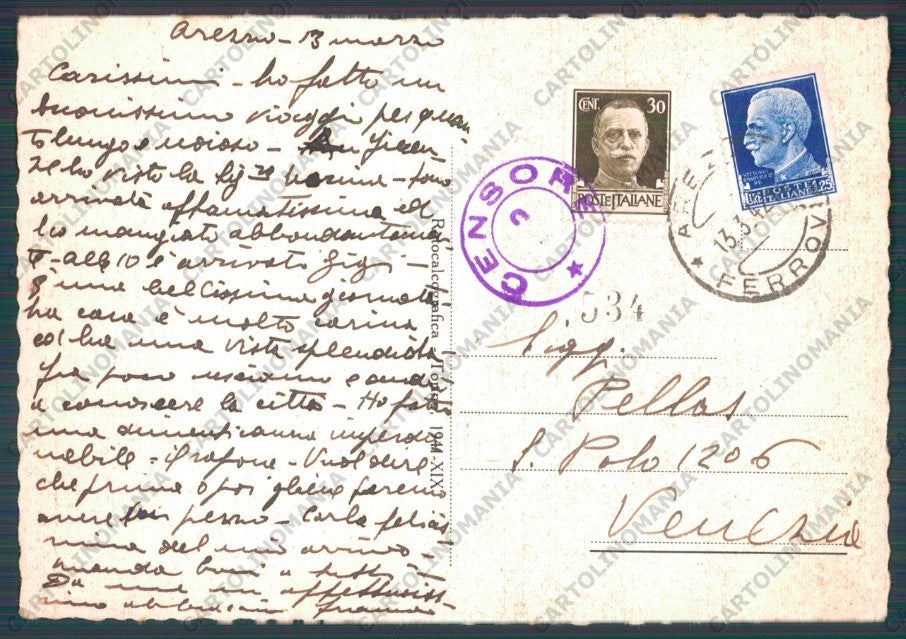 Arezzo - 13 marzo
Carissimi - ho fatto un
buonissimo viaggio per quan
to lungo e noioso - Firen
ze ho visto la Sono
arrivata affamatissima ed
ho mangiato abbondantemen
te - alle 10 è arrivato Gigi -
È una bellissima giornata
la casa è molto carina
ed ha una vista splendida
fra poco usciamo e andr
a conoscere la città - Ho fatto
una dimenticanza imperdo
nabile - Vuol dire
che prima o poi gliene faremo
avere un pezzo - Carla felicis
sima del mio arrivo -
manda baci a tutti
Da me un affettuosis
simo abbraccio
Rotocalcografica 1941-XIX
CENT. 30
POSTE ITALIANE
VITTORIO EMANUELE III
POSTE
LIRE ITALIANE 1,25
CENSORE
2
AREZZO
13.3.42
FERROVIA
534
Sigg.
Pellas
S. Polo 1206
Venezia
CARTOLINOMANIA